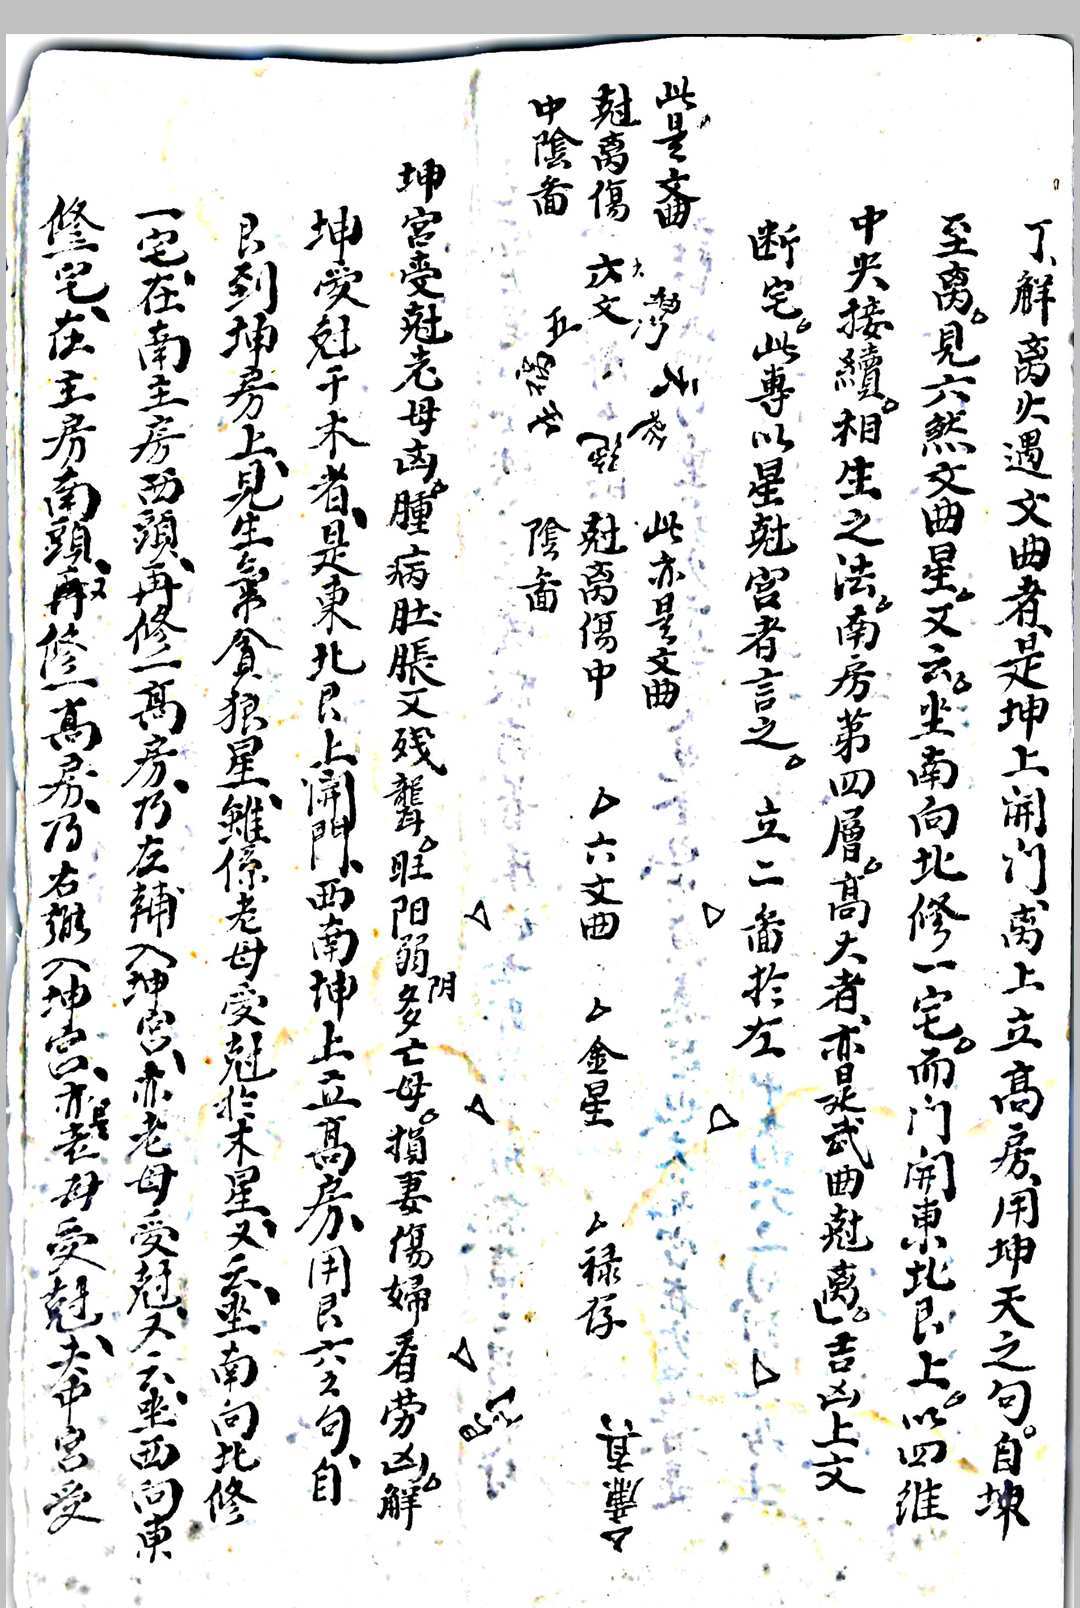 丁、解离火遇文曲者、是坤上開门、离上立高房、用坤天之句。自坤
至离。見六煞文曲星。又云。坐南向北修一宅。而门開東北艮上。以四维
中央接續。相生之法。南房第四層。高大者、亦是武曲尅离。吉凶上文
断宅。此專以星尅宮者言之。 立二畨於左
此是文曲
尅离傷
中陰畨
六文
五
此亦是文曲
尅离傷中
陰畨
六文曲
金星
禄存
坤宮受尅老母凶。腫病肚脹又残聾。旺阳弱阴多亡母。損妻傷婦看劳凶。解
坤受尅于木者、是東北艮上開門、西南坤上立高房、用艮六之句、自
艮到坤房上、見生氣貪狼星、雖係老母受尅於木星、又云、坐南向北修
一宅、在南主房西頭、再修一高房、乃左輔入坤宮、亦老母受尅、又云、坐西向東
修一宅、在主房南頭、再修一高房、乃右弼入坤宮、亦是老母受尅、夫中宮受